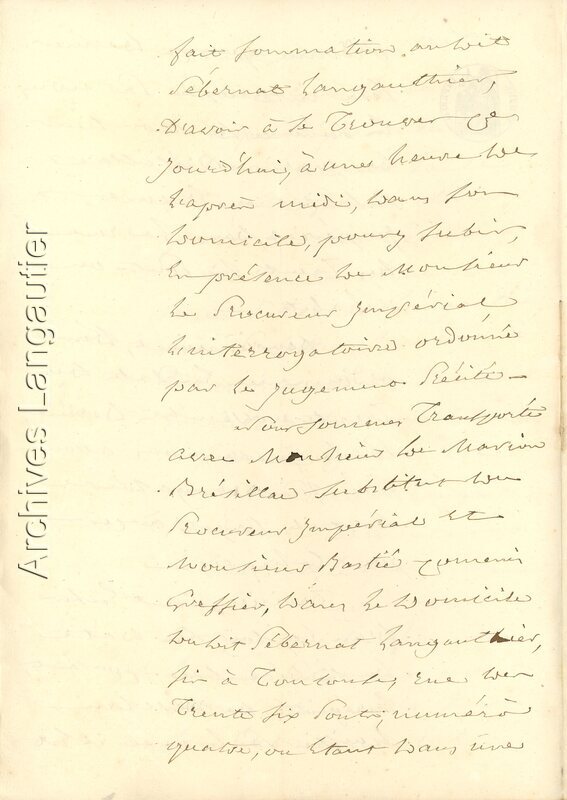 fait sommation audit
Sébernat Langauthier,
D'avoir à se trouver ce
jourd'hui, à une heure de
l'après midi, dans son
domicile, pour y subir,
En présence de Monsieur
Le Procureur Impérial
L'interrogatoire ordonné
par le jugement Précité —
Nous sommes Transporté
avec Monsieur de Marion
Brésillac substitut du
Procureur Impérial et
Monsieur Bastié commis
Greffier, dans le domicile
dudit Sébernat Langauthier,
sis à Toulouse, rue des
Trente six Ponts, numéro
quatre, ou Etant dans une
Archives Langautier